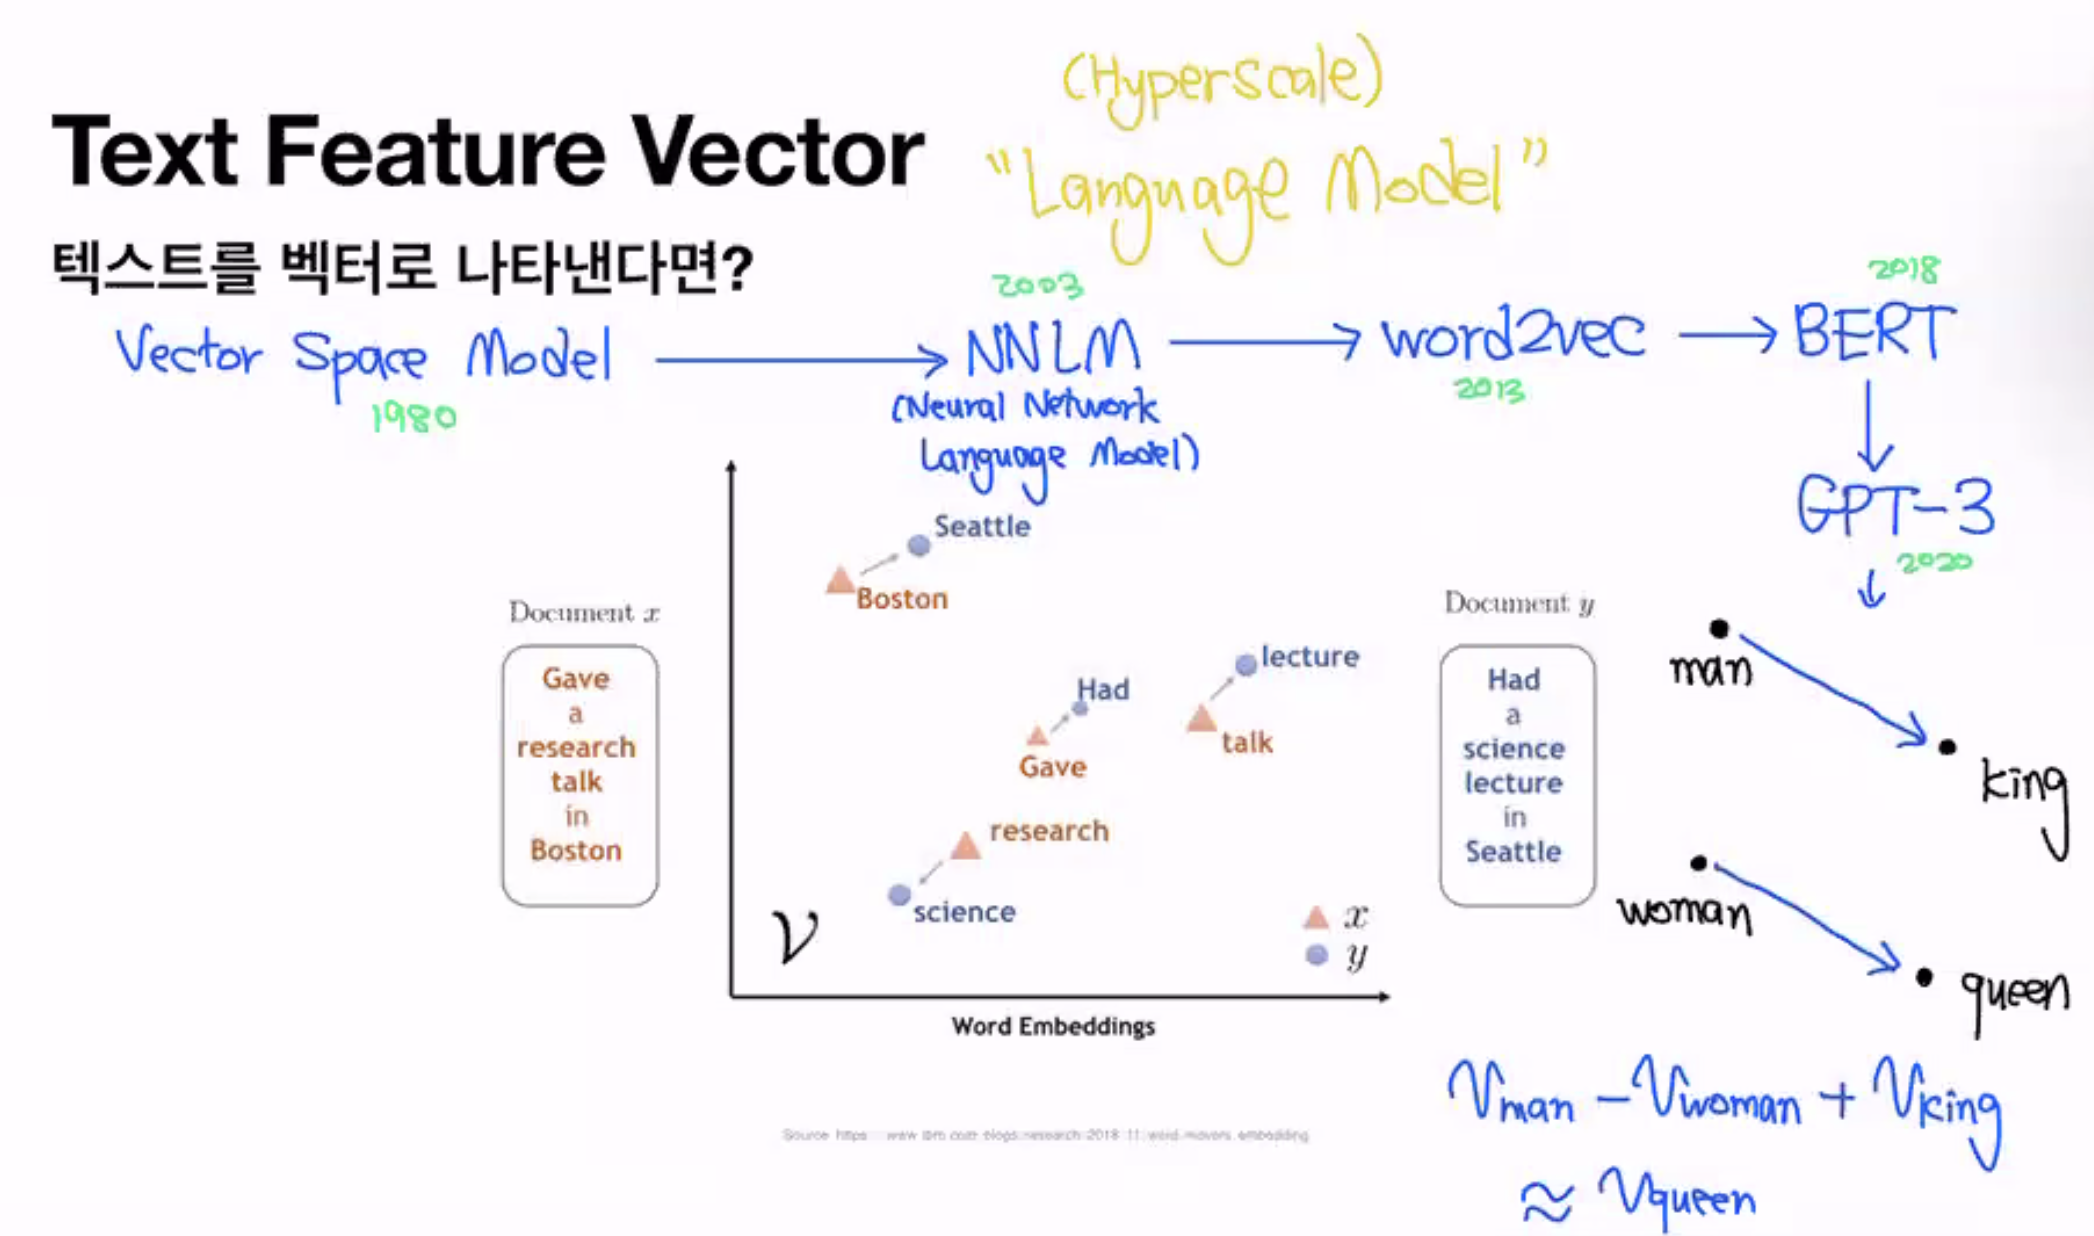 (Hyperscale)
Text Feature Vector
"Language Model"
텍스트를 벡터로 나타낸다면?
2003
2018
Vector Space Model
NNLM
word2vec
BERT
1980
(Neural Network
Language Model)
2013
GPT-3
2020
Document x
Gave
a
research
talk
in
Boston
Seattle
Boston
lecture
Had
talk
Gave
research
science
V
x
y
Word Embeddings
Document y
Had
a
science
lecture
in
Seattle
man
king
woman
queen
Vman − Vwoman + Vking
≈ Vqueen
Source https www ibm com blogs research 2018 11 word movers embedding